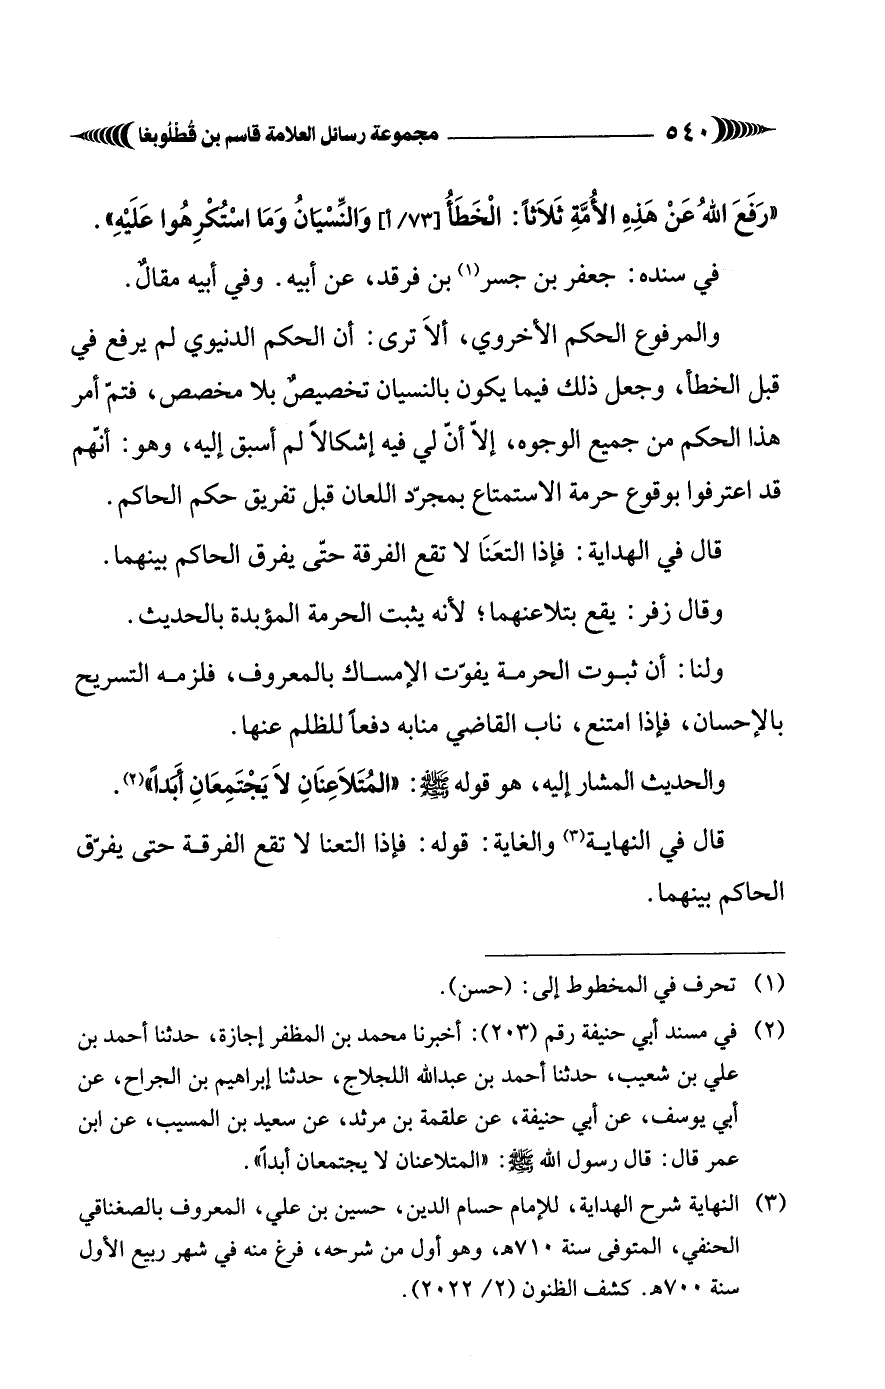 ٥٤٠ مجموعة رسائل العلامة قاسم بن قُطْلُوبغا
«رَفَعَ اللهُ عَنْ هَذِهِ الأُمَّةِ ثَلَاثاً: الْخَطَأُ [٧٣/ أ] وَالنِّسْيَانُ وَمَا اسْتُكْرِهُوا عَلَيْهِ».
في سنده: جعفر بن جسر(١) بن فرقد، عن أبيه. وفي أبيه مقالٌ.
والمرفوع الحكم الأخروي، ألاَ ترى: أن الحكم الدنيوي لم يرفع في
قبل الخطأ، وجعل ذلك فيما يكون بالنسيان تخصيصٌ بلا مخصص، فتمّ أمر
هذا الحكم من جميع الوجوه، إلاّ أنّ لي فيه إشكالاً لم أسبق إليه، وهو: أنّهم
قد اعترفوا بوقوع حرمة الاستمتاع بمجرّد اللعان قبل تفريق حكم الحاكم.
قال في الهداية: فإذا التعَنَا لا تقع الفرقة حتّى يفرق الحاكم بينهما.
وقال زفر: يقع بتلاعنهما؛ لأنه يثبت الحرمة المؤبدة بالحديث.
ولنا: أن ثبوت الحرمة يفوّت الإمساك بالمعروف، فلزمه التسريح
بالإحسان، فإذا امتنع، ناب القاضي منابه دفعاً للظلم عنها.
والحديث المشار إليه، هو قوله ﷺ: «المُتَلاَعِنَانِ لاَ يَجْتَمِعَانِ أَبَداً»(٢).
قال في النهاية(٣) والغاية: قوله: فإذا التعنا لا تقع الفرقة حتى يفرّق
الحاكم بينهما.
(١) تحرف في المخطوط إلى: (حسن).
(٢) في مسند أبي حنيفة رقم (٢٠٣): أخبرنا محمد بن المظفر إجازة، حدثنا أحمد بن
علي بن شعيب، حدثنا أحمد بن عبدالله اللجلاج، حدثنا إبراهيم بن الجراح، عن
أبي يوسف، عن أبي حنيفة، عن علقمة بن مرثد، عن سعيد بن المسيب، عن ابن
عمر قال: قال رسول الله ﷺ: «المتلاعنان لا يجتمعان أبداً».
(٣) النهاية شرح الهداية، للإمام حسام الدين، حسين بن علي، المعروف بالصغناقي
الحنفي، المتوفى سنة ٧١٠هـ، وهو أول من شرحه، فرغ منه في شهر ربيع الأول
سنة ٧٠٠هـ. كشف الظنون (٢/ ٢٠٢٢).